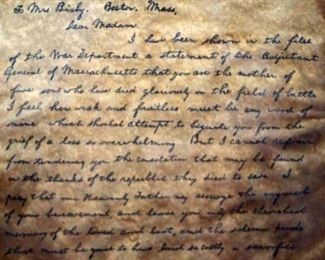 To Mrs Bixby, Boston, Mass,
Dear Madam:
I have been shown in the files
of the War Department a statement of the Adjutant
General of Massachusetts that you are the mother of
five sons who has died gloriously on the field of battle
I feel how weak and fruitless must be any word of
mine which should attempt to beguile you from the
grief of a loss so overwhelming But I cannot refrain
from tendering you the consolation that may be found
in the thanks of the republic they died to save I
pray that our Heavenly Father may assuage the anguish
of your bereavement, and leave you only the cherished
memory of the loved and lost, and the solemn pride
that must be yours to have laid so costly a sacrifice